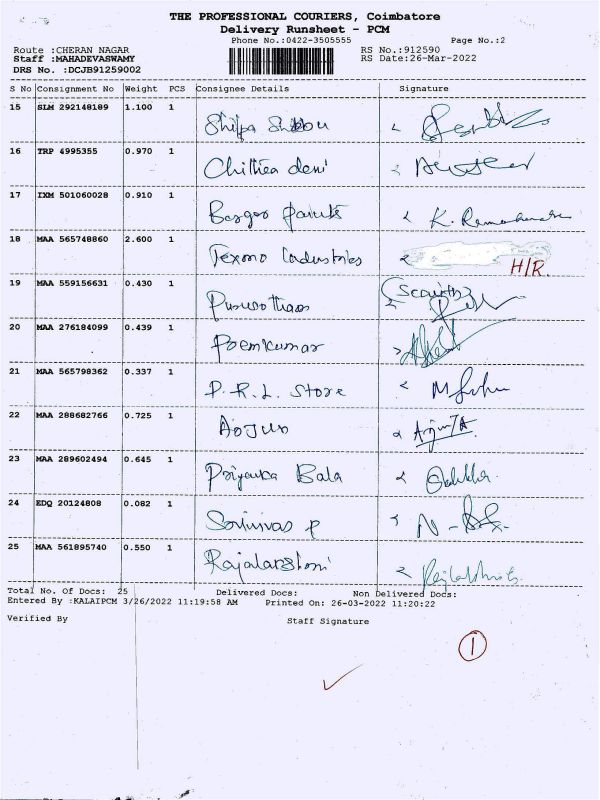 THE PROFESSIONAL COURIERS, Coimbatore
Delivery Runsheet - PCM
Phone No.:0422-3505555 Page No.:2
Route :CHERAN NAGAR RS No.:912590
Staff :MAHADEVASWAMY RS Date:26-Mar-2022
DRS No. :DCJB91259002
S No Consignment No Weight PCS Consignee Details Signature
15 SLM 292148189 1.100 1
Shilpa
16 TRP 4995355 0.970 1
Chithra devi
17 IXM 501060028 0.910 1
K. Ramachandra
18 MAA 565748860 2.600 1
Texmo Industries H/R.
19 MAA 559156631 0.430 1
20 MAA 276184099 0.439 1
Premkumar
21 MAA 565798362 0.337 1
P. R. L. Store
22 MAA 288682766 0.725 1
Arjun
23 MAA 289602494 0.645 1
Priyanka Bala
24 EDQ 20124808 0.082 1
Srinivas P
25 MAA 561895740 0.550 1
Total No. Of Docs: 25 Delivered Docs: Non Delivered Docs:
Entered By :KALAIPCM 3/26/2022 11:19:58 AM Printed On: 26-03-2022 11:20:22
Verified By Staff Signature
1